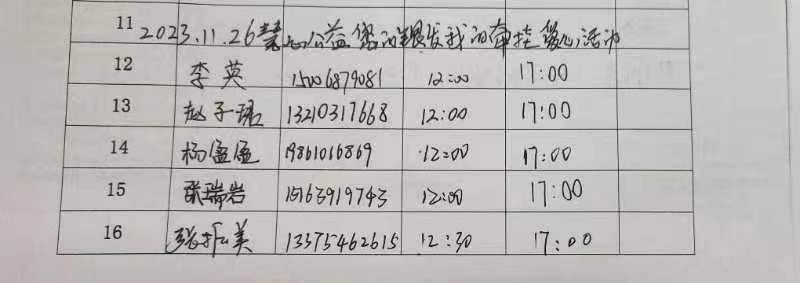 11 2023.11.26慧心公益 您的银发我的牵挂 爱心活动
12 李英 15006879081 12:00 17:00
13 赵子珺 13210317668 12:00 17:00
14 杨孟孟 19861016869 12:00 17:00
15 张瑞岩 15163919743 12:00 17:00
16 张振美 13375462615 12:30 17:00